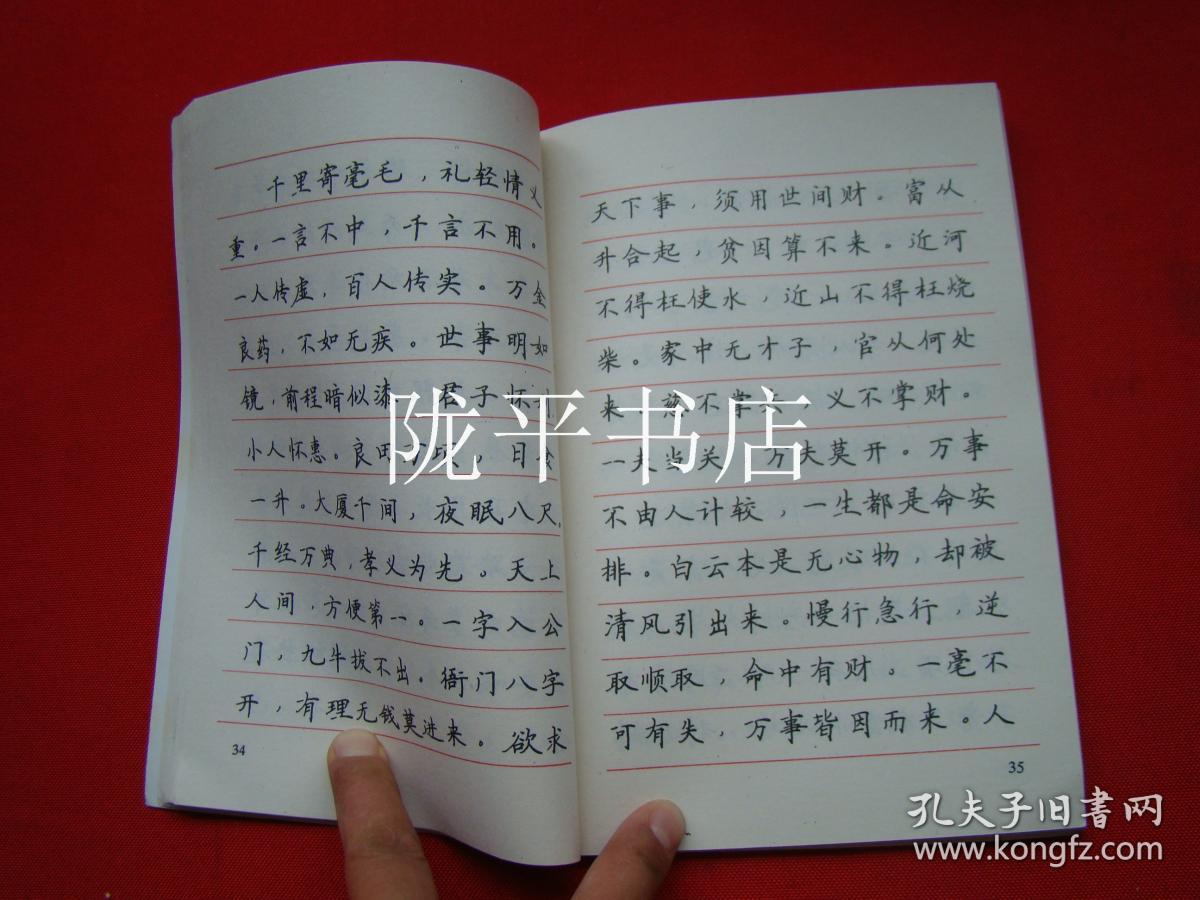 千里寄毫毛，礼轻情义
重。一言不中，千言不用。
一人传虚，百人传实。万金
良药，不如无疾。世事明如
镜，前程暗似漆。君子怀刑，
小人怀惠。良田万顷，日食
一升。大厦千间，夜眠八尺，
千经万典，孝义为先。天上
人间，方便第一。一字入公
门，九牛拔不出。衙门八字
开，有理无钱莫进来。欲求
34
天下事，须用世间财。富从
升合起，贫因算不来。近河
不得枉使水，近山不得枉烧
柴。家中无才子，官从何处
来。慈不掌兵，义不掌财。
一夫当关，万夫莫开。万事
不由人计较，一生都是命安
排。白云本是无心物，却被
清风引出来。慢行急行，逆
取顺取，命中有财。一毫不
可有失，万事皆因而来。人
35
陇平书店
孔夫子旧書网
www.kongfz.com